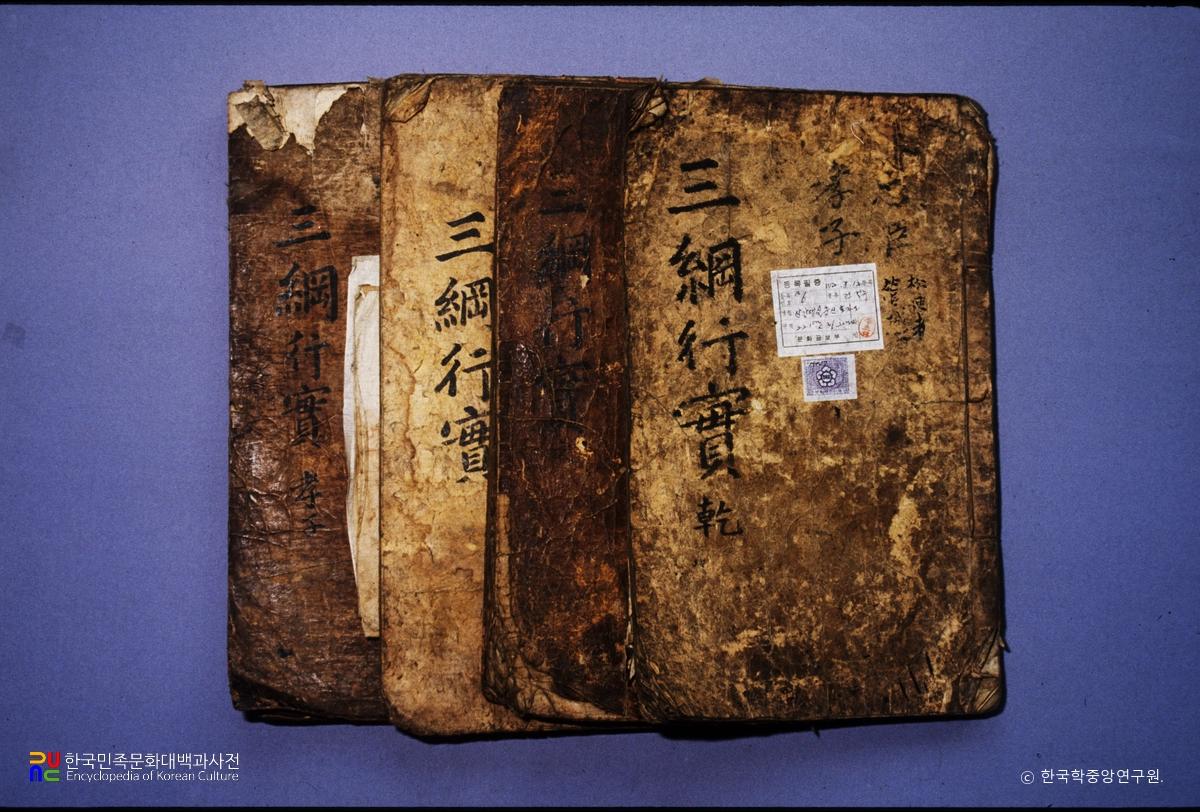 三綱行實 孝子
三綱行實
三綱行實
三綱行實 乾
孝子
忠臣
등록필증
문화공보부
한국민족문화대백과사전
Encyclopedia of Korean Culture
© 한국학중앙연구원.